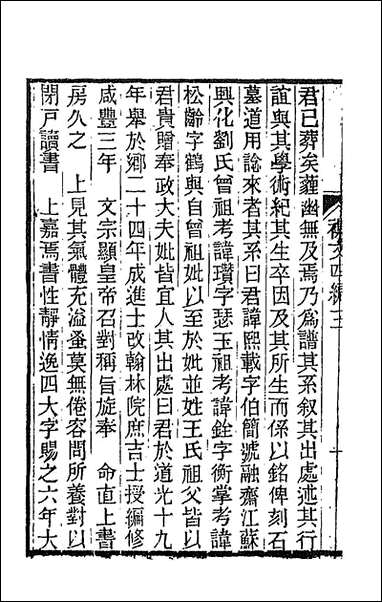 君已葬矣薶幽無及焉乃爲譜其系叙其出處述其行
誼與其學術紀其生卒因及其所生而係以銘俾刻石
墓道用諗來者其系曰君諱熙載字伯簡號融齋江蘇
興化劉氏曾祖考諱瓚字瑟玉祖考諱銓字衡掌考諱
松齡字鶴與自曾祖妣以至於妣並姓王氏祖父皆以
君貴贈奉政大夫妣皆宜人其出處曰君於道光十九
年舉於鄉二十四年成進士改翰林院庶吉士授編修
咸豐三年 文宗顯皇帝召對稱旨旋奉 命直上書
房久之 上見其氣體充溢蚤莫無倦容問所養對以
閉戶讀書 上嘉焉書性靜情逸四大字賜之六年大
襍文四編三